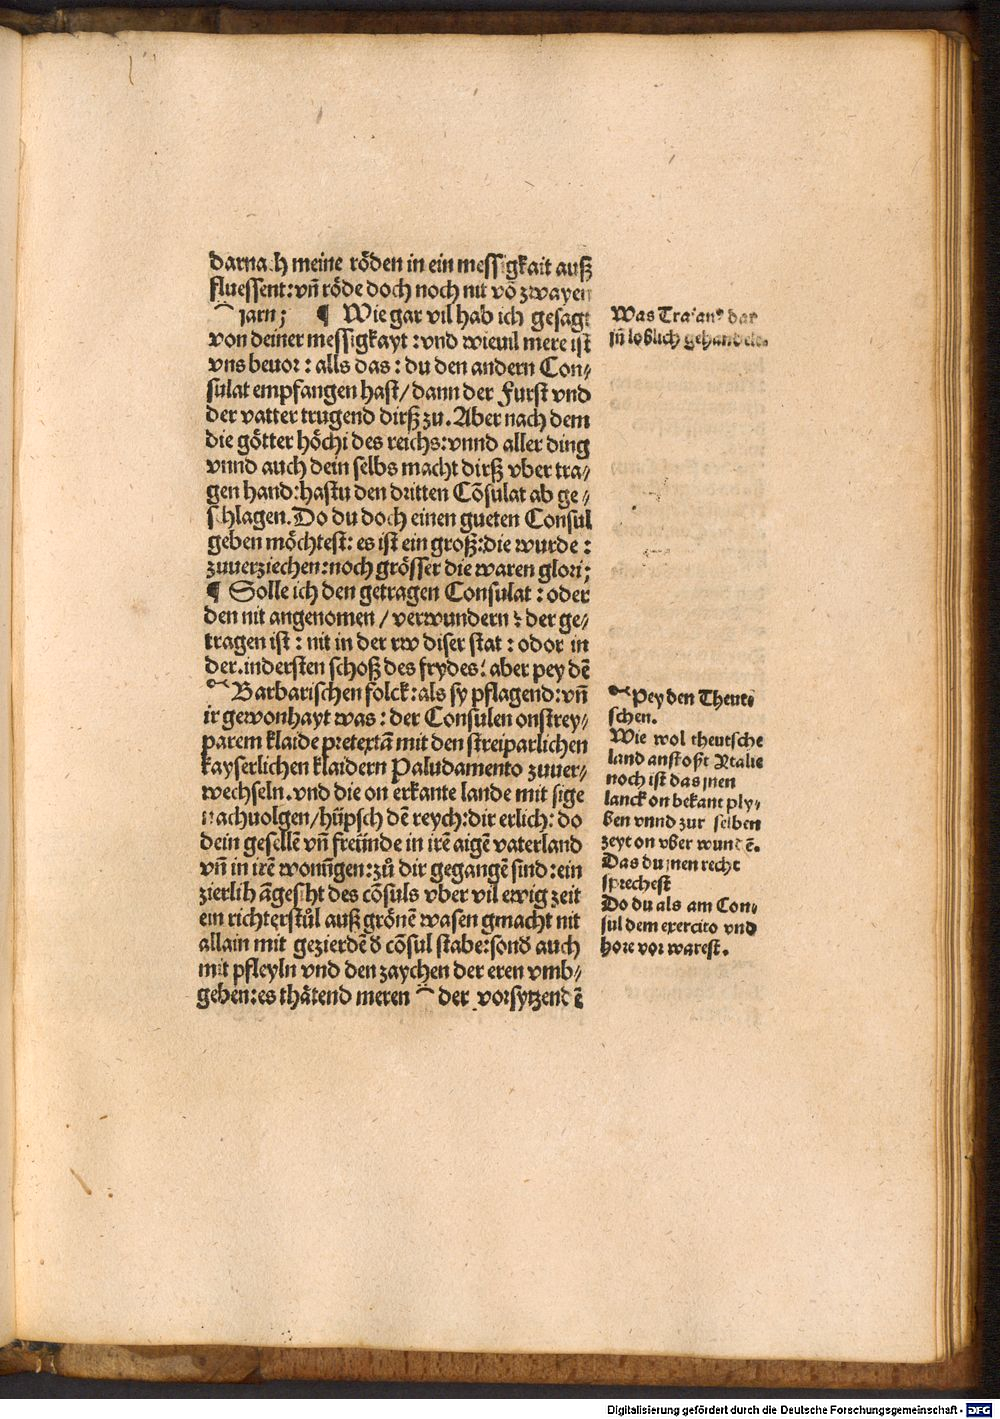 darnach meine röden in ein messigkait auß
fluessent: vñ röde doch noch nit võ zwayen
jarn; ¶ Wie gar vil hab ich gesagt
von deiner messigkayt : vnd wieuil mere ist
vns beuor : alls das : du den andern Con/
sulat empfangen hast/ dann der Furst vnd
der vatter trugend dirß zu. Aber nach dem
die götter höchi des reichs: vnnd aller ding
vnnd auch dein selbs macht dirß vber tra/
gen hand: hastu den dritten Cõsulat ab ge/
schlagen. Do du doch einen gueten Consul
geben möchtest: es ist ein groß: die wurde :
zuuerziechen: noch grösser die waren glori;
¶ Solle ich den getragen Consulat : oder
den nit angenomen / verwundern : der ge/
tragen ist : nit in der rw diser stat : odor in
der indersten schoß des frydes : aber pey dẽ
Barbarischen folck: als sy pflagend: vñ
ir gewonhayt was : der Consulen onstrey/
parem klaide pretextã mit den streiparlichen
kayserlichen klaidern Paludamento zuuer/
wechseln. vnd die on erkante lande mit sige
nachuolgen/ hüpsch dẽ reych: dir erlich: do
dein gesellẽ vñ freünde in irẽ aigẽ vaterland
vñ in irẽ wonũgen: zů dir gegangẽ sind: ein
zierlih ãgesiht des cõsuls vber vil ewig zeit
ein richterstůl auß grönẽ wasen gmacht nit
allain mit gezierdẽ d cõsul stabe: sond auch
mit pfleyln vnd den zaychen der eren vmb/
geben: es thätend meren der vorsytzend ẽ
Was Traian⁹ dar
jñ loblich gehandelt.
Pey den Theut/
schen.
Wie wol theutsche
land anstoßt Ytalie
noch ist das jnen
lanck on bekant ply/
ben vnnd zur selben
zeyt on vber wundẽ.
Das du jnen recht
sprechest
Do du als am Con/
sul dem exercito vnd
hore vor warest.
Digitalisierung gefördert durch die Deutsche Forschungsgemeinschaft - DFG